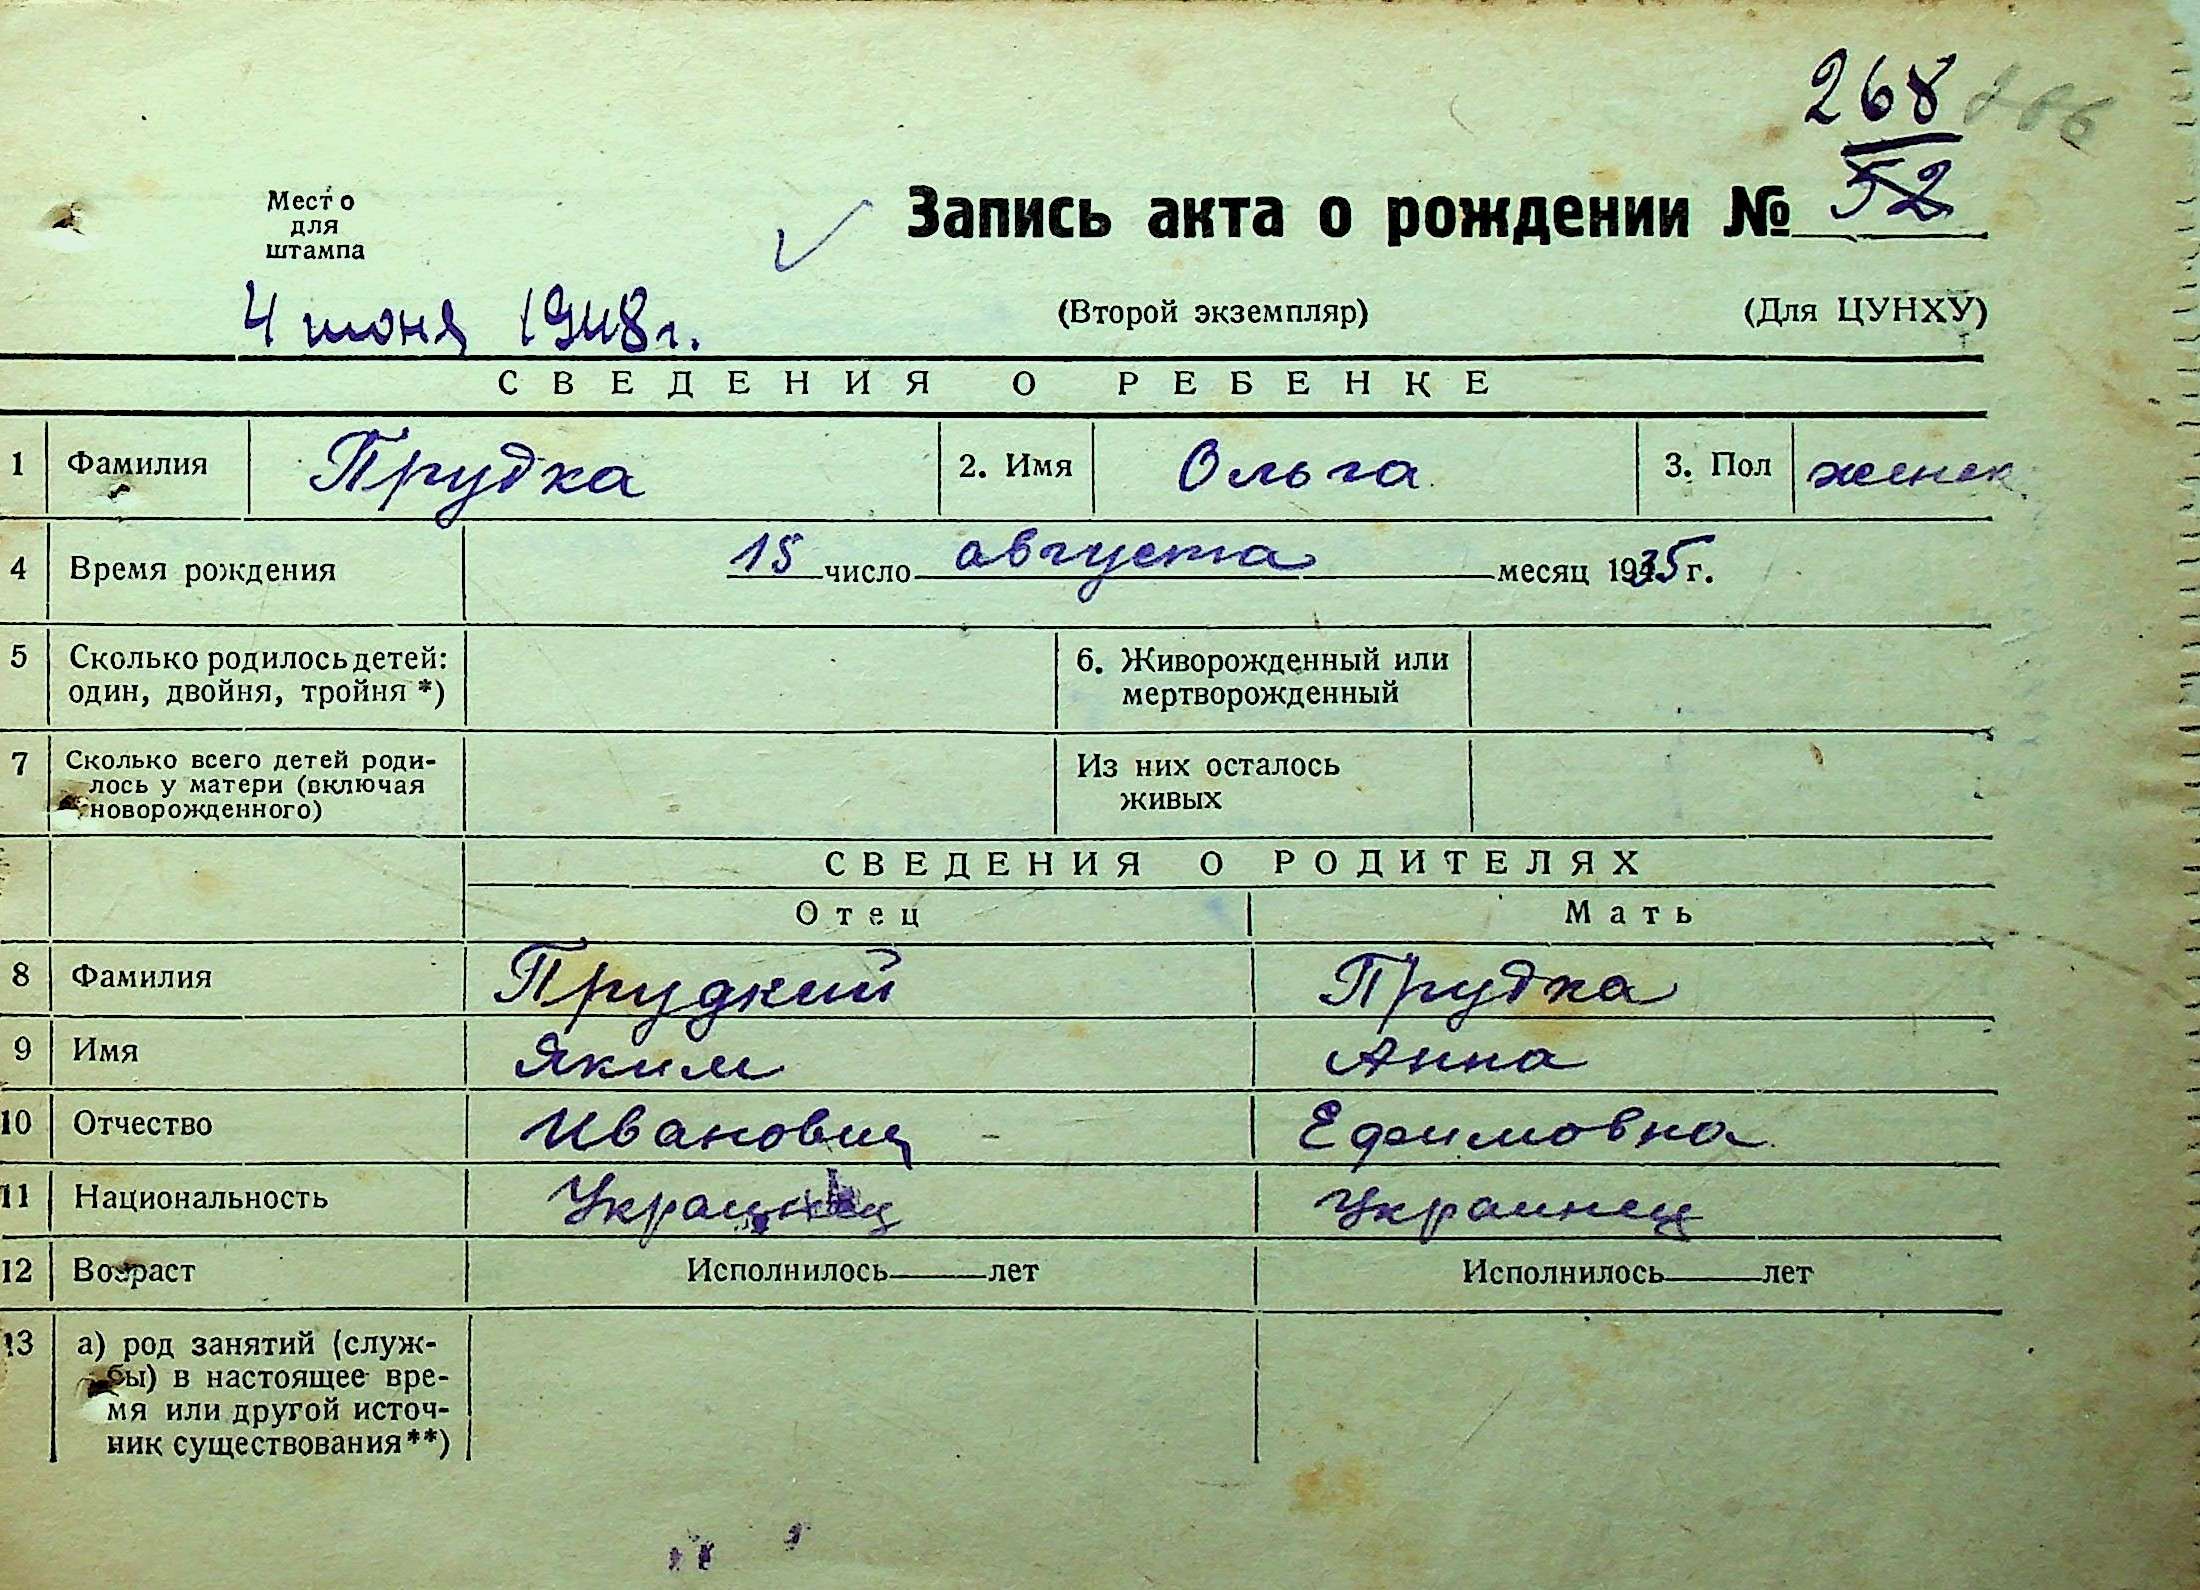 268 266
Место
для
штампа
Запись акта о рождении № 52
4 июня 1948 г.
(Второй экземпляр) (Для ЦУНХУ)
СВЕДЕНИЯ О РЕБЕНКЕ
1 Фамилия Прудка 2. Имя Ольга 3. Пол женск.
4 Время рождения 15 число августа месяц 1935 г.
5 Сколько родилось детей: 6. Живорожденный или
один, двойня, тройня *) мертворожденный
7 Сколько всего детей роди- Из них осталось
лось у матери (включая живых
новорожденного)
СВЕДЕНИЯ О РОДИТЕЛЯХ
Отец Мать
8 Фамилия Прудкий Прудка
9 Имя Яким Анна
10 Отчество Иванович Ефимовна
11 Национальность Украинец Украинец
12 Возраст Исполнилось лет Исполнилось лет
13 а) род занятий (служ-
бы) в настоящее вре-
мя или другой источ-
ник существования **)